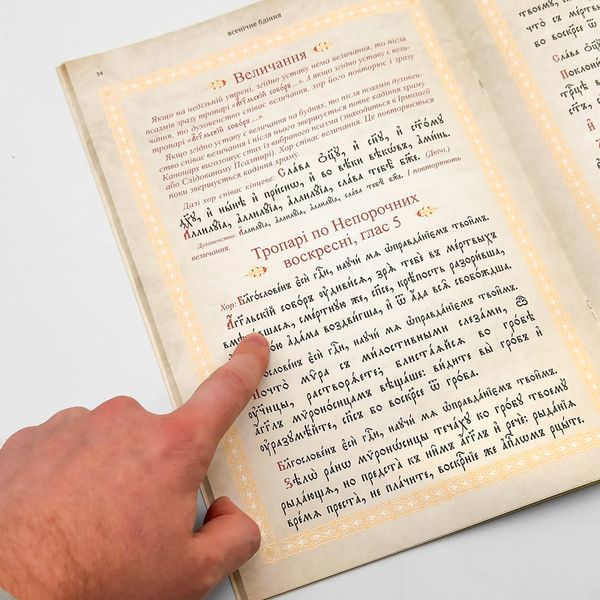 всенічне бдіння
34
Величання
Якщо на недільній утрені, згідно уставу нема величання, то після
псалмів зразу тропарі «А҆́гг҃льскїй собо́ръ...». А якщо згідно уставу є вели-
чання, то духовенство співає величання, хор його повторює і зразу
тропарі «А҆́гг҃льскїй собо́ръ...».
Якщо згідно уставу є величання на буднях, то після псалмів духовен-
ство співає величання і після нього звершується повне кадіння храму.
Канонарх виголошує стих із вибраного псалма (знаходиться в Ірмології
або Слідованому Псалтирі). Хор співає величання. Це повторюється
поки звершується кадіння храму.
Далі хор співає кінцеве: Сла́ва ѻ҆ц҃ꙋ̀, и҆ сн҃ꙋ, и҆ ст҃о́мꙋ
дх҃ꙋ, и҆ ны́нѣ и҆ при́снѡ, и҆ во вѣ́ки вѣкѡ́въ, а҆ми́нь.
А҆ллилꙋ́їа, а҆ллилꙋ́їа, а҆ллилꙋ́їа, сла́ва тебѣ̀ бж҃е. (Двічі.)
Духовенство: А҆ллилꙋ́їа, а҆ллилꙋ́їа, а҆ллилꙋ́їа, сла́ва тебѣ̀ бж҃е. І повторюють
величання.
Тропарі по Непорочних
воскресні, глас 5
Хор: Бл҃гослове́нъ є҆сѝ гдⷭ҇и, наꙋчи́ мѧ ѡ҆правда́нїємъ твои̑мъ.
А҆́гг҃льскїй собо́ръ ᲂу҆диви́сѧ, зрѧ̀ тебѐ въ ме́ртвыхъ
вмѣни́вшасѧ, сме́ртнꙋю же, сп҃се, крѣ́пость разори́вша,
а҆да́ма воздви́гша, и҆ ѿ а҆́да всѧ̑ свобо́ждша.
Бл҃гослове́нъ є҆сѝ гдⷭ҇и, наꙋчи́ мѧ ѡ҆правда́нїємъ твои̑мъ.
Почто̀ мѵ́ра съ ми́лостивными слеза́ми, ѽ
ᲂу҆чн҃цы, растворѧ́ете; блиста́ѧйсѧ во гро́бѣ
а҆́гг҃лъ мѵроно́сицамъ вѣща́ше: ви́дите вы̀ гро́бъ и҆
ᲂу҆разꙋмѣ́йте, сп҃съ бо воскре́се ѿ гро́ба.
Бл҃гослове́нъ є҆сѝ гдⷭ҇и, наꙋчи́ мѧ ѡ҆правда́нїємъ твои̑мъ.
Ѕѣлѡ̀ ра́нѡ мѵроно́сицы теча́хꙋ ко гро́бꙋ твоемꙋ̀
рыда́ющѧ, но предста̀ къ ни̑мъ а҆́гг҃лъ и҆ речѐ: рыда́нїѧ
вре́мѧ преста̀, не пла́чите, воскрⷭ҇нїе же а҆пⷭ҇лѡмъ рцы́те.
что̀ съ ме́ртвы
во воскре́се ѿ
Сла́ва ѻ҆
Поклони́